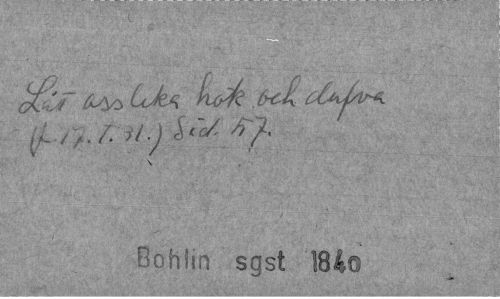 Låt oss leka hok och dufva
(f. 17. T. 31.) Sid. 57.
Bohlin sgst 1840